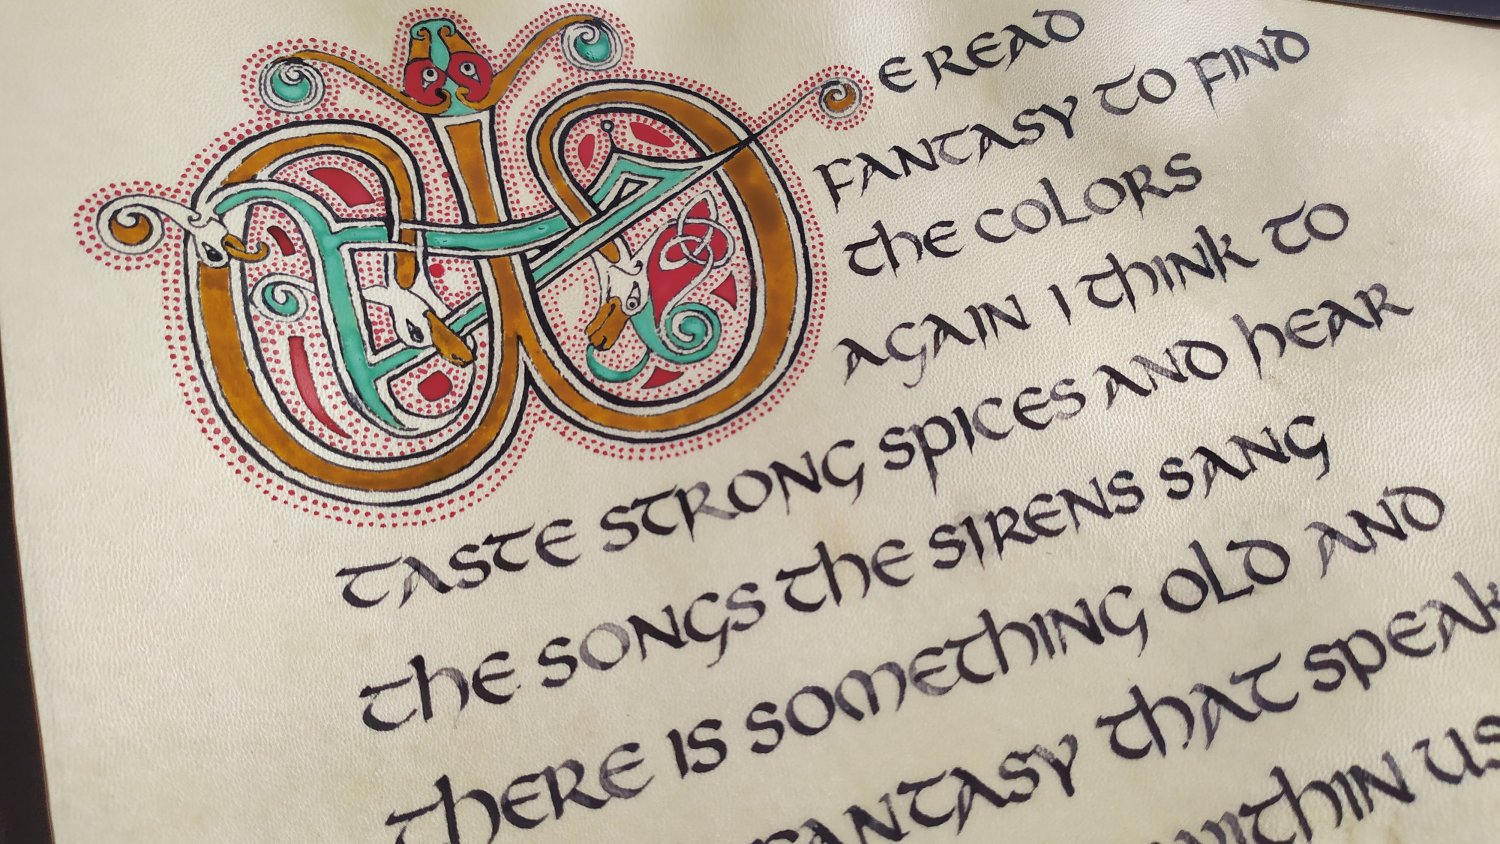 WE READ
FANTASY TO FIND
THE COLORS
AGAIN I THINK TO
TASTE STRONG SPICES AND HEAR
THE SONGS THE SIRENS SANG
THERE IS SOMETHING OLD AND
FANTASY THAT SPEAK
WITHIN US